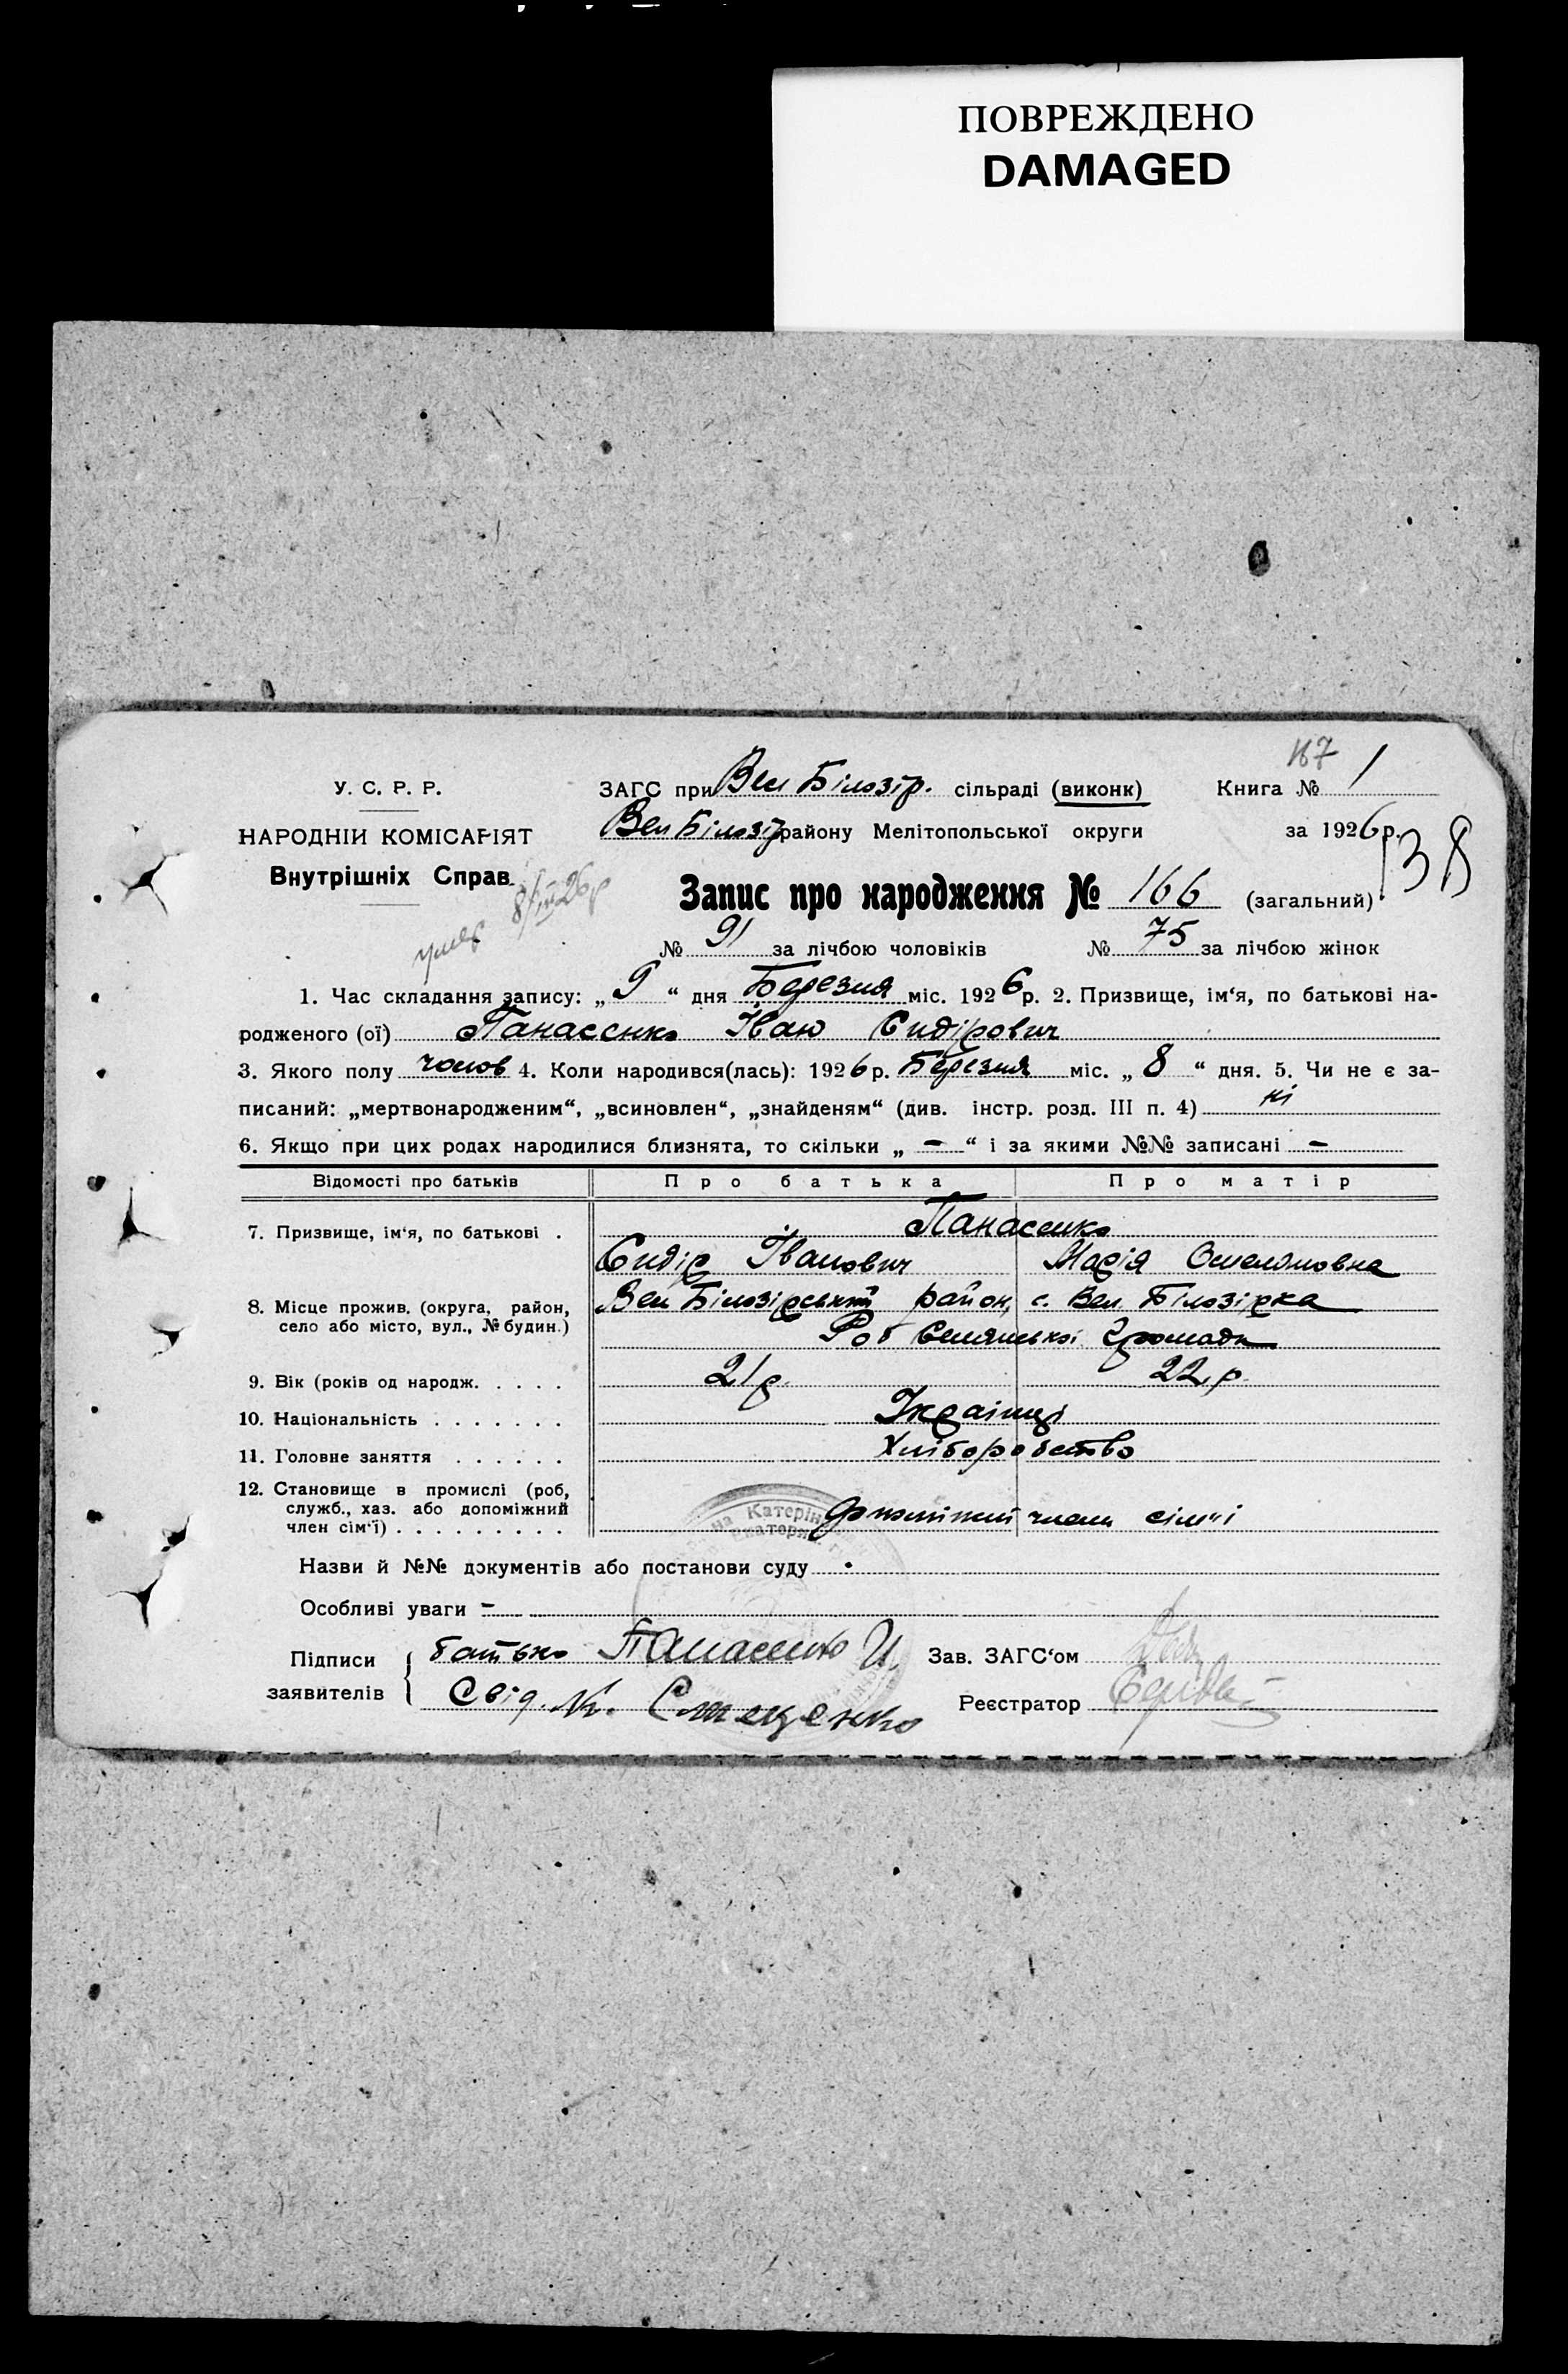 ПОВРЕЖДЕНО
DAMAGED
У. С. Р. Р.
НАРОДНІЙ КОМІСАРІЯТ
Внутрішніх Справ.
умер 8/III 26 р
ЗАГС при Вел Білозір. сільраді (виконк)
Вел Білозір району Мелітопольської округи
Книга № 1
за 1926 р.
138
Запис про народження № 166 (загальний)
№ 91 за лічбою чоловіків № 75 за лічбою жінок
1. Час складання запису: „ 9 “ дня Березня міс. 1926 р. 2. Призвище, ім‘я, по батькові на-
родженого (ої) Панасенко Іван Сидірович
3. Якого полу чолов 4. Коли народився(лась): 1926 р. Березня міс. „ 8 “ дня. 5. Чи не є за-
писаний: „мертвонародженим“, „всиновлен“, „знайденям“ (див. інстр. розд. III п. 4) ні
6. Якщо при цих родах народилися близнята, то скільки „ – “ і за якими №№ записані –
Відомості про батьків Про батька Про матір
7. Призвище, ім‘я, по батькові . Панасенко
Сидір Іванович Марія Омеляновна
8. Місце прожив. (округа, район, село або місто, вул., № будин.) Вел Білозірський район, с. Вел. Білозірка
Роб Селянської Громади
9. Вік (років од народж. . . . . 21 р. 22 р.
10. Національність . . . . . . . Українці
11. Головне заняття . . . . . . Хліборобство
12. Становище в промислі (роб,
служб., хаз. або допоміжний
член сім‘ї) . . . . . . . . . допоміжний член сім"і
Назви й №№ документів або постанови суду
Особливі уваги –
Підписи заявителів { батько Панасенко И.
Свід. М. Стеценко
Зав. ЗАГС‘ом
Реєстратор